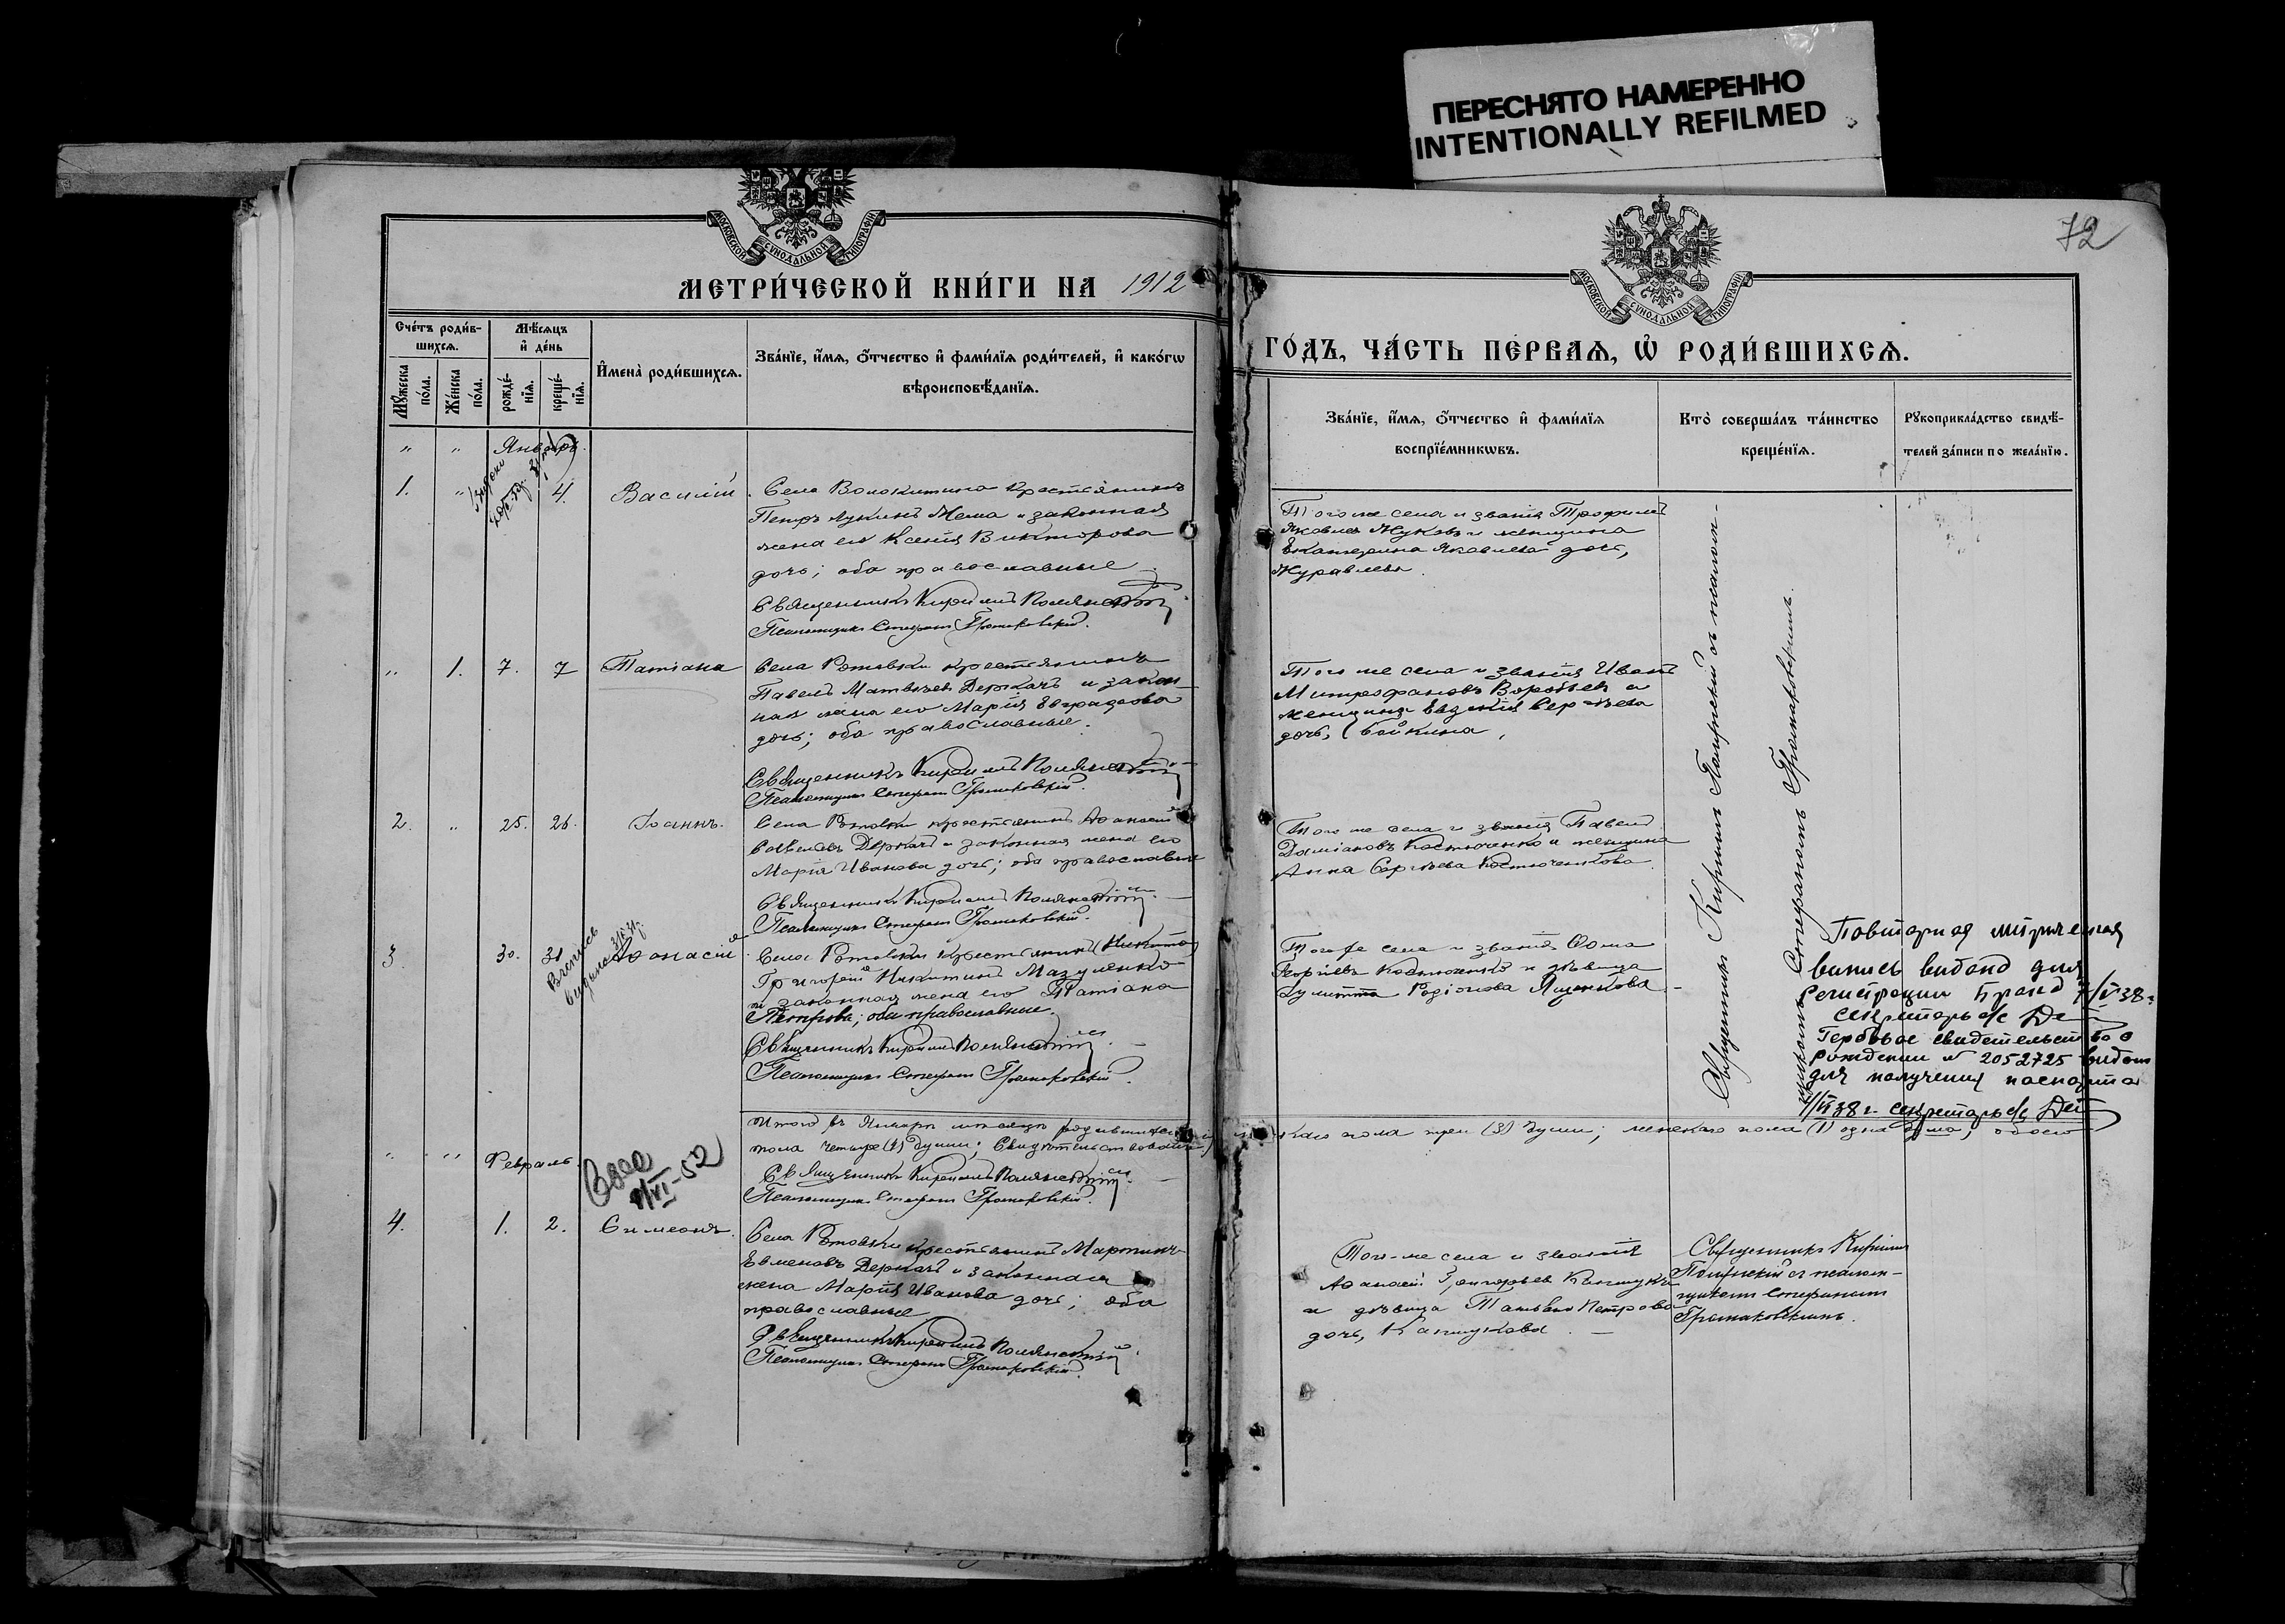 ПЕРЕСНЯТО НАМЕРЕННО
INTENTIONALLY REFILMED
72
МОСКОВСКОЙ СѴНОДАЛЬНОЙ ТИПОГРАФІИ
МЕТРИ́ЧЕСКОЙ КНИ́ГИ НА 1912
Сче́тъ роди́в-
шихсѧ.
Мѣ́сѧцъ
и҆ де́нь
Мꙋ́жеска по́ла.
Же́нска по́ла.
рожде́-нїѧ.
креще́-нїѧ.
И҆мена̀ роди́вшихсѧ.
Зва́нїе, и҆́мѧ, ѻ҆́тчество и҆ фами́лїѧ роди́телей, и҆ како́гѡ
вѣроисповѣ́данїѧ.
" " Январь.
1. " 4. Василій.
Села Волокитина крестьянинъ
Петръ Лукинъ и законная
жена его Ксенія Викторова
дочь; оба православные
Священникъ Кириллъ Полянскій
Псаломщикъ Стефанъ Громаковскій.
" 1. 7. 7 Татіана
Села Ротовки крестьянинъ
Павелъ Матвѣевъ Деркачъ и закон-
ная жена его Марія Евграфова
дочь; оба православные.
Священникъ Кириллъ Полянскій
Псаломщикъ Стефанъ Громаковскій.
2. " 25. 26. Іоаннъ.
Села Ротовки крестьянинъ Аѳанасій
Савельевъ Деркачъ и законная жена его
Марія Иванова дочь; оба православные
Священникъ Кириллъ Полянскій
Псаломщикъ Стефанъ Громаковскій.
3 30. 31 Аѳанасій
Села Ротовки крестьянинъ (Никита)
Григорій Никитинъ Мазуленко
и законная жена его Татіана
Петрова; оба православные.
Священникъ Кириллъ Полянскій
Псаломщикъ Стефанъ Громаковскій.
Итого въ Январѣ мѣсяцѣ родившихся
пола четыре (4) души; Свидѣтельствовали:
" " Февраль.
8/VI-52
Священникъ Кириллъ Полянскій
Псаломщикъ Стефанъ Громаковскій.
4. 1. 2. Симеонъ.
Села Ротовки крестьянинъ Мартинъ
Евменовъ Деркачъ и законная
жена Марія Иванова дочь; оба
православные
Священникъ Кириллъ Полянскій
Псаломщикъ Стефанъ Громаковскій.
МОСКОВСКОЙ СѴНОДАЛЬНОЙ ТИПОГРАФІИ
ГО́ДЪ, ЧА́СТЬ ПЕ́РВАѦ, Ѽ РОДИ́ВШИХСѦ.
Зва́нїе, и҆́мѧ, ѻ҆́тчество и҆ фами́лїѧ
воспрїе́мникѡвъ.
Кто̀ соверша́лъ та́инство
креще́нїѧ.
Рꙋкоприкла́дство свидѣ́-
телей за́писи по жела́нїю.
Того же села и званія Трофимъ
Яковлевъ Жуковъ и женщина
Екатерина Яковлева дочь,
Журавлева.
Того же села и званія Иванъ
Митрофановъ Воробьевъ и
женщина Евдокія Сергѣева
дочь, Бойкина.
Того же села и званія Павелъ
Даміановъ Костюченко и женщина
Анна Сергѣева Костюченкова.
Того же села и званія Ѳома
Георгіевъ Костюченко и дѣвица
Іулитта Родіонова Яценкова
Священникъ Кириллъ Полянскій съ псалом-
щикомъ Стефаномъ Громаковскимъ.
Повторная метрическая
выпись выдана для
регистрации брака 7/V 38 г.
секретарь с/с
Гербовое свидетельство о
рождении № 2052725 выдано
для получения паспорта
секретарь с/с
мужского пола три (3) души; женскаго пола (1) одна душа; обоего
Того-же села и званія
Аѳанасій Григорьевъ
и дѣвица Татьяна Петрова
дочь,
Священникъ Кириллъ
Полянскій съ псалом-
щикомъ Стефаномъ
Громаковскимъ.